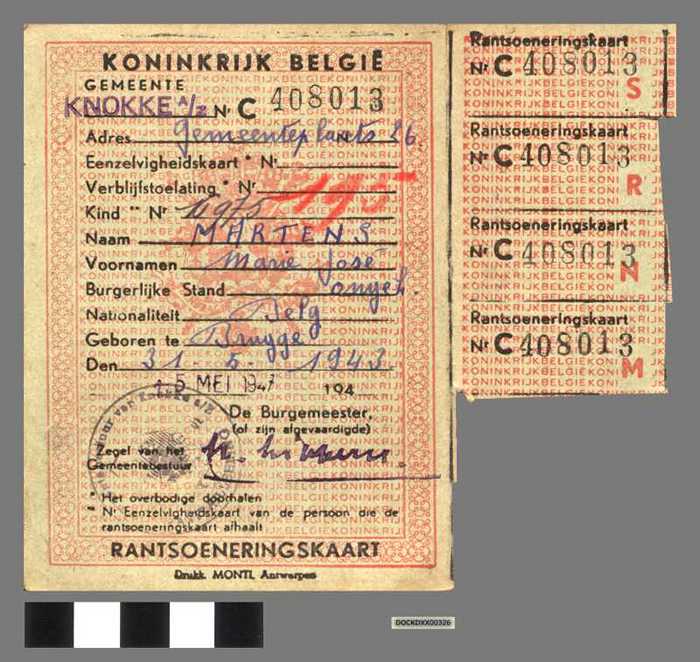 KONINKRIJK BELGIË
GEMEENTE
KNOKKE A/Z Nr C 408013
Adres Gemeenteplaats 26
Eenzelvigheidskaart * Nr
Verblijfstoelating * Nr
Kind ** Nr 1975 195
Naam MARTENS
Voornamen Marie José
Burgerlijke Stand ongeh.
Nationaliteit Belg
Geboren te Brugge
Den 31 - 5 - 1943
15 MEI 1947 194
De Burgemeester,
(of zijn afgevaardigde)
Zegel van het
Gemeentebestuur
* Het overbodige doorhalen
** Nr Eenzelvigheidskaart van de persoon die de
rantsoeneringskaart afhaalt
RANTSOENERINGSKAART
Drukk. MONTI, Antwerpen
Rantsoeneringskaart
Nr C 408013
S
Rantsoeneringskaart
Nr C 408013
R
Rantsoeneringskaart
Nr C 408013
N
Rantsoeneringskaart
Nr C 408013
M
DOCKDXX00326